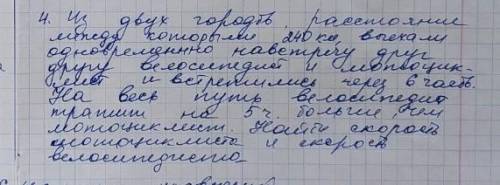 4. Из двух городов, расстояние
между которыми 240 км, выехали
одновременно навстречу друг
другу велосипедист и мотоцик-
лист и встретились через 6 часов.
На весь путь велосипедист
тратит на 5 ч. больше, чем
мотоциклист. Найти скорость
мотоциклиста и скорость
велосипедиста